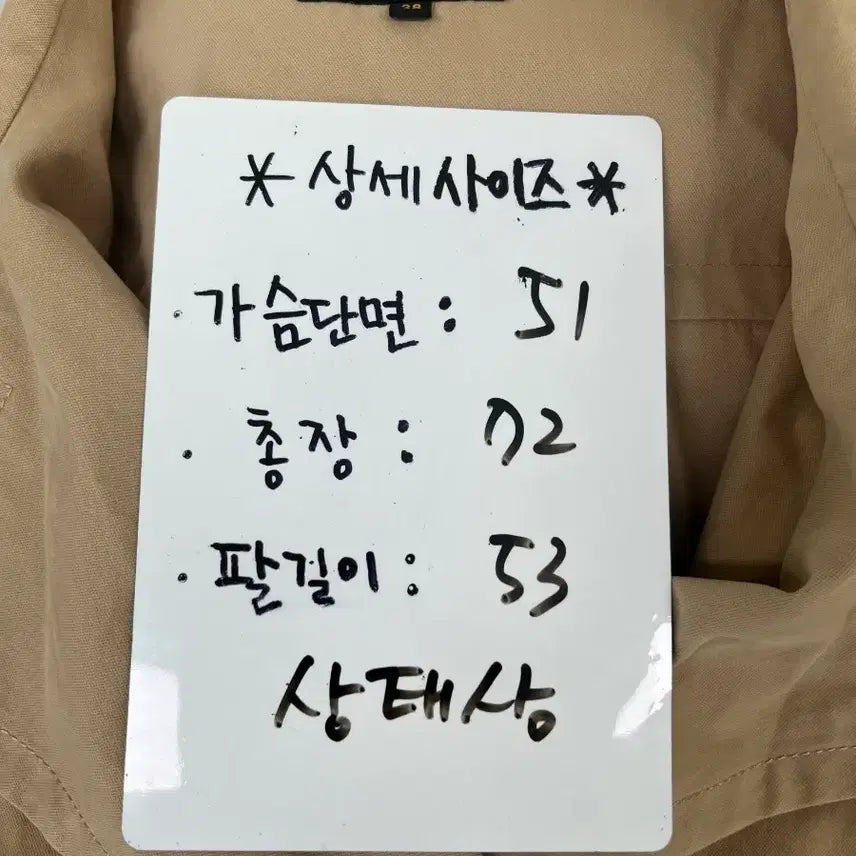 38
*상세사이즈*
· 가슴단면 : 51
· 총장 : 72
· 팔길이 : 53
상태상